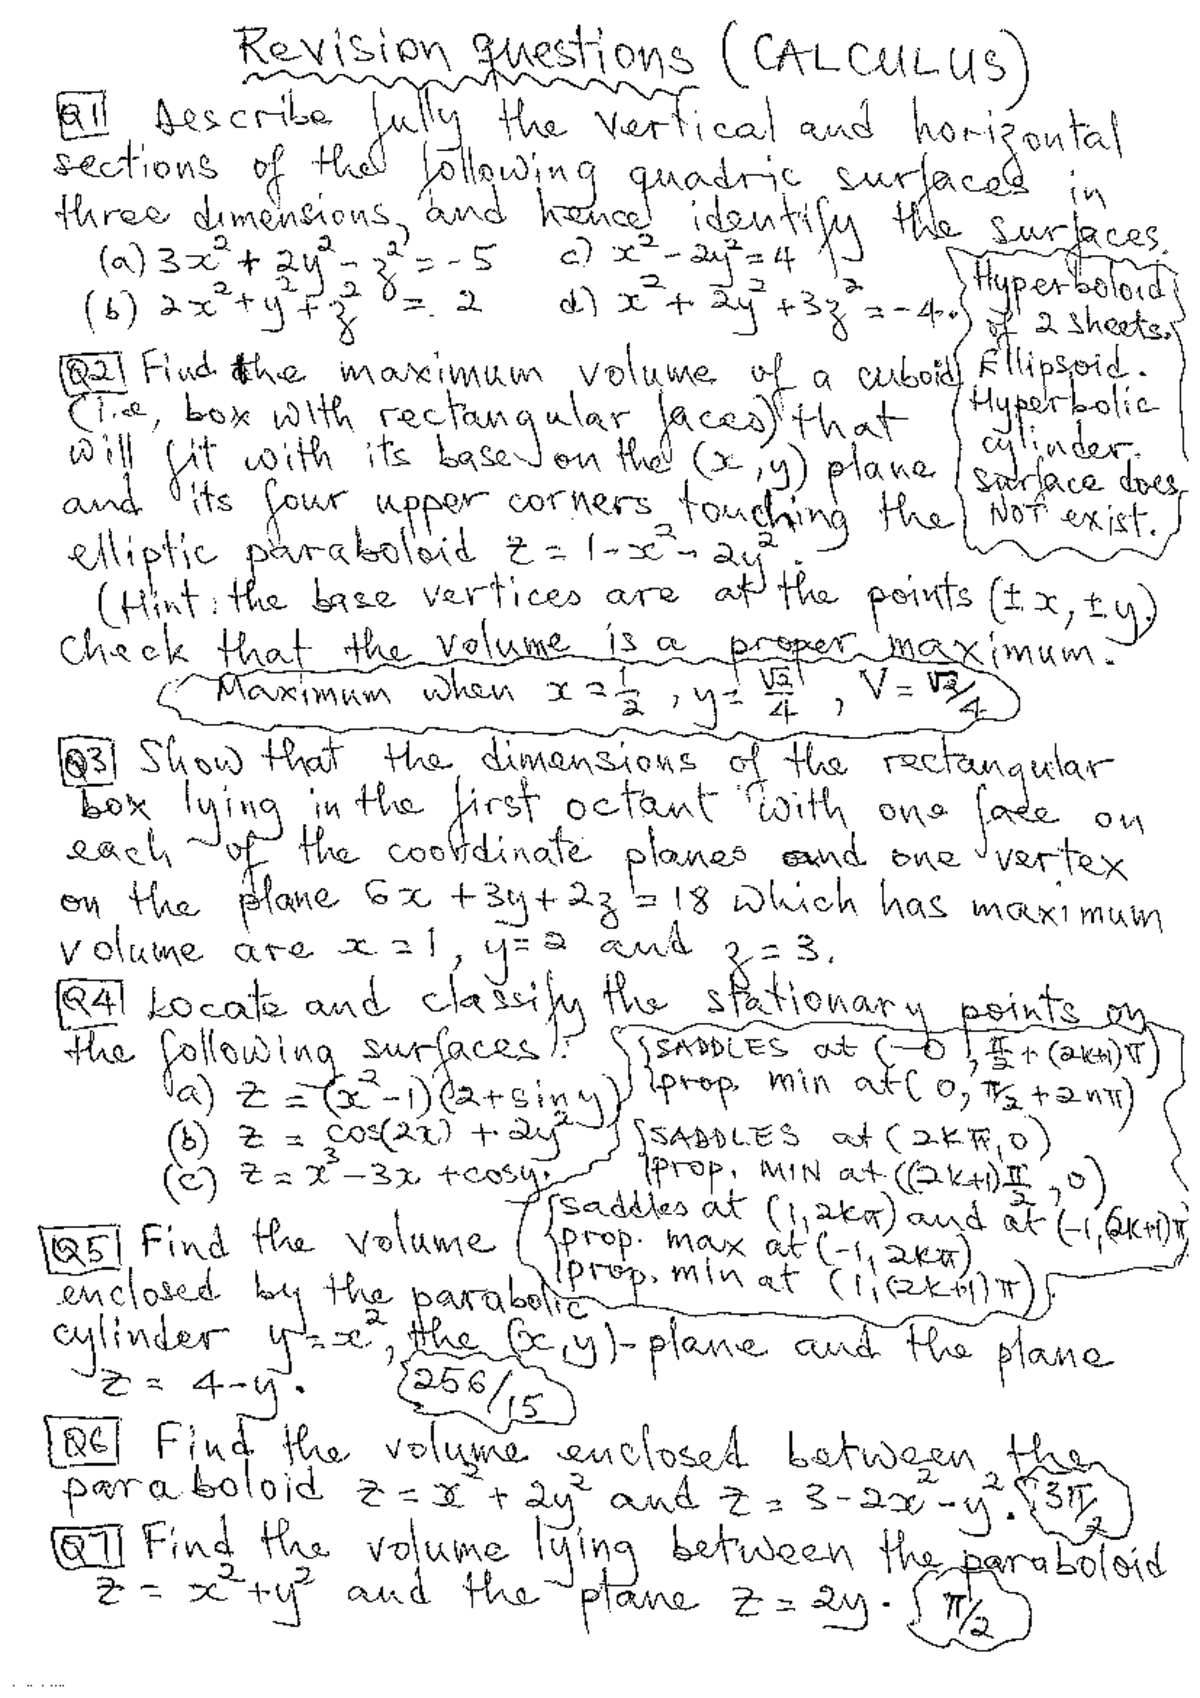 Revision questions (CALCULUS)
Q1 Describe fully the vertical and horizontal
sections of the following quadric surfaces in
three dimensions, and hence identify the surfaces.
(a) 3x² + 2y² - z² = -5 c) x² - 2y² = 4
(b) 2x² + y² + z² = 2 d) x² + 2y² + 3z² = -4.
Hyperboloid
of 2 sheets.
Ellipsoid.
Hyperbolic
cylinder.
surface does
NOT exist.
Q2 Find the maximum volume of a cuboid
(i.e, box with rectangular faces) that
will fit with its base on the (x, y) plane
and its four upper corners touching the
elliptic paraboloid z = 1 - x² - 2y².
(Hint: the base vertices are at the points (±x, ±y)
Check that the volume is a proper maximum.
Maximum when x = 1/2, y = √2/4, V = √2/4
Q3 Show that the dimensions of the rectangular
box lying in the first octant with one face on
each of the coordinate planes and one vertex
on the plane 6x + 3y + 2z = 18 which has maximum
volume are x = 1, y = 2 and z = 3.
Q4 Locate and classify the stationary points on
the following surfaces:
a) z = (x² - 1)(2 + sin y)
(b) z = cos(2x) + 2y²
(c) z = x³ - 3x + cosy.
SADDLES at ( 0, π/2 + (2k+1)π)
prop. min at ( 0, π/2 + 2nπ)
SADDLES at (2kπ, 0)
prop. MIN at ((2k+1)π/2, 0)
saddles at (1, 2kπ) and at (-1, (2k+1)π)
prop. max at (-1, 2kπ)
prop. min at (1, (2k+1)π)
Q5 Find the volume
enclosed by the parabolic
cylinder y = x², the (x, y)-plane and the plane
z = 4 - y. 256/15
Q6 Find the volume enclosed between the
paraboloid z = x² + 2y² and z = 3 - 2x² - y². 3π/2
Q7 Find the volume lying between the paraboloid
z = x² + y² and the plane z = 2y. π/2